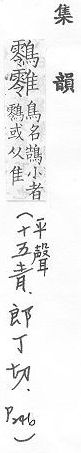 集韻
鳥名鶉小者
或从隹
(平聲
十五青．郎丁切．P246)